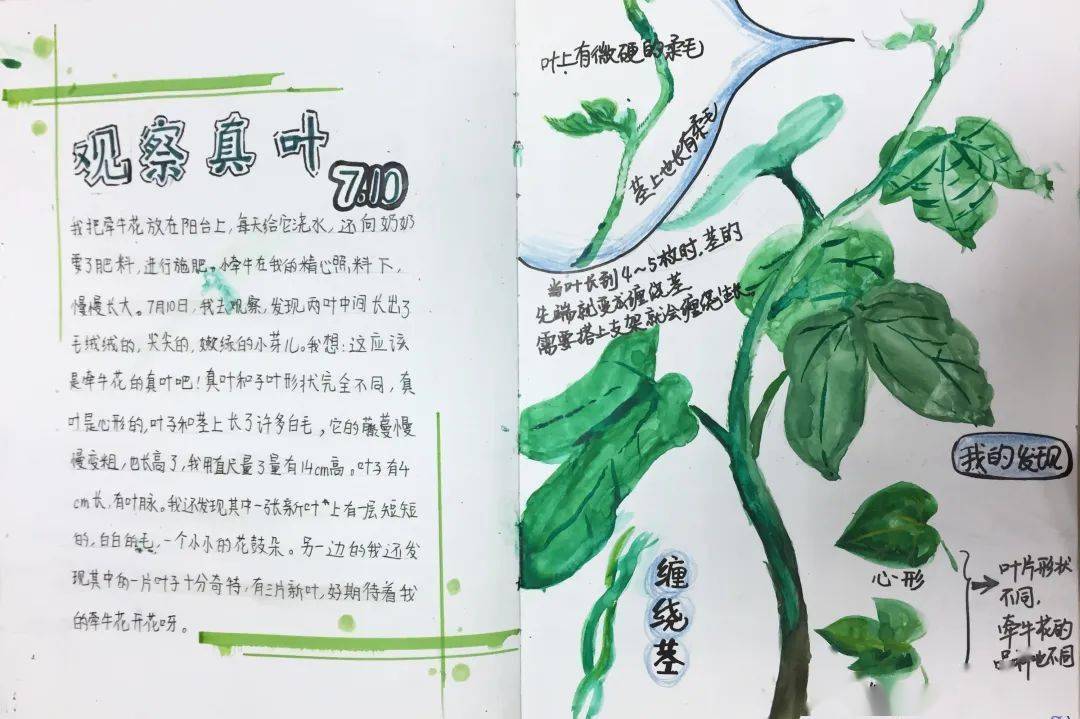 观察真叶
7.10
我把牵牛花放在阳台上，每天给它浇水，还向奶奶
要了肥料，进行施肥。小牵牛在我的精心照料下，
慢慢长大。7月10日，我去观察，发现两叶中间长出了
毛绒绒的，尖尖的，嫩绿的小芽儿。我想：这应该
是牵牛花的真叶吧！真叶和子叶形状完全不同，真
叶是心形的，叶子和茎上长了许多白毛，它的藤蔓慢
慢变粗，也长高了，我用直尺量了量有14cm高。叶子有4
cm长，有叶脉。我还发现其中一张新叶上有一层短短
的，白白的毛，一个小小的花鼓朵。另一边的我还发
现其中有一片叶子十分奇特，有三片新叶，好期待着我
的牵牛花开花呀。
叶上有微硬的柔毛
茎上也长有柔毛
当叶长到4~5枚时，茎的
先端就变成缠绕茎
需要搭上支架就会缠绕生长。
缠绕茎
我的发现
心形
叶片形状
不同，
牵牛花的
品种也不同